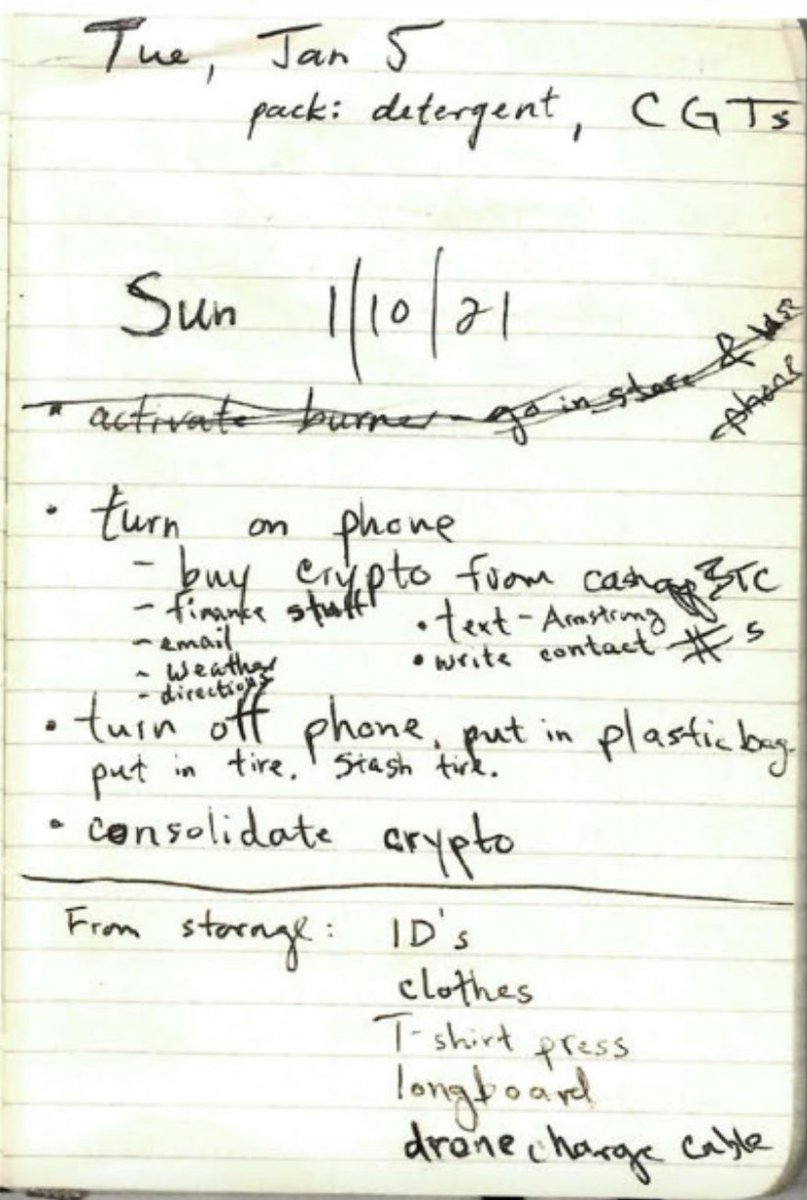 Tue, Jan 5
pack: detergent, CGTs
Sun 1/10/21
• activate burner - go in store & use
phone
• turn on phone
- buy crypto from cashapp BTC
- finance stuff
• text - Armstrong
- email
• write contact #s
- weather
- directions
• turn off phone, put in plastic bag.
put in tire. Stash tire.
• consolidate crypto
From storage: ID's
clothes
T-shirt press
longboard
drone charge cable